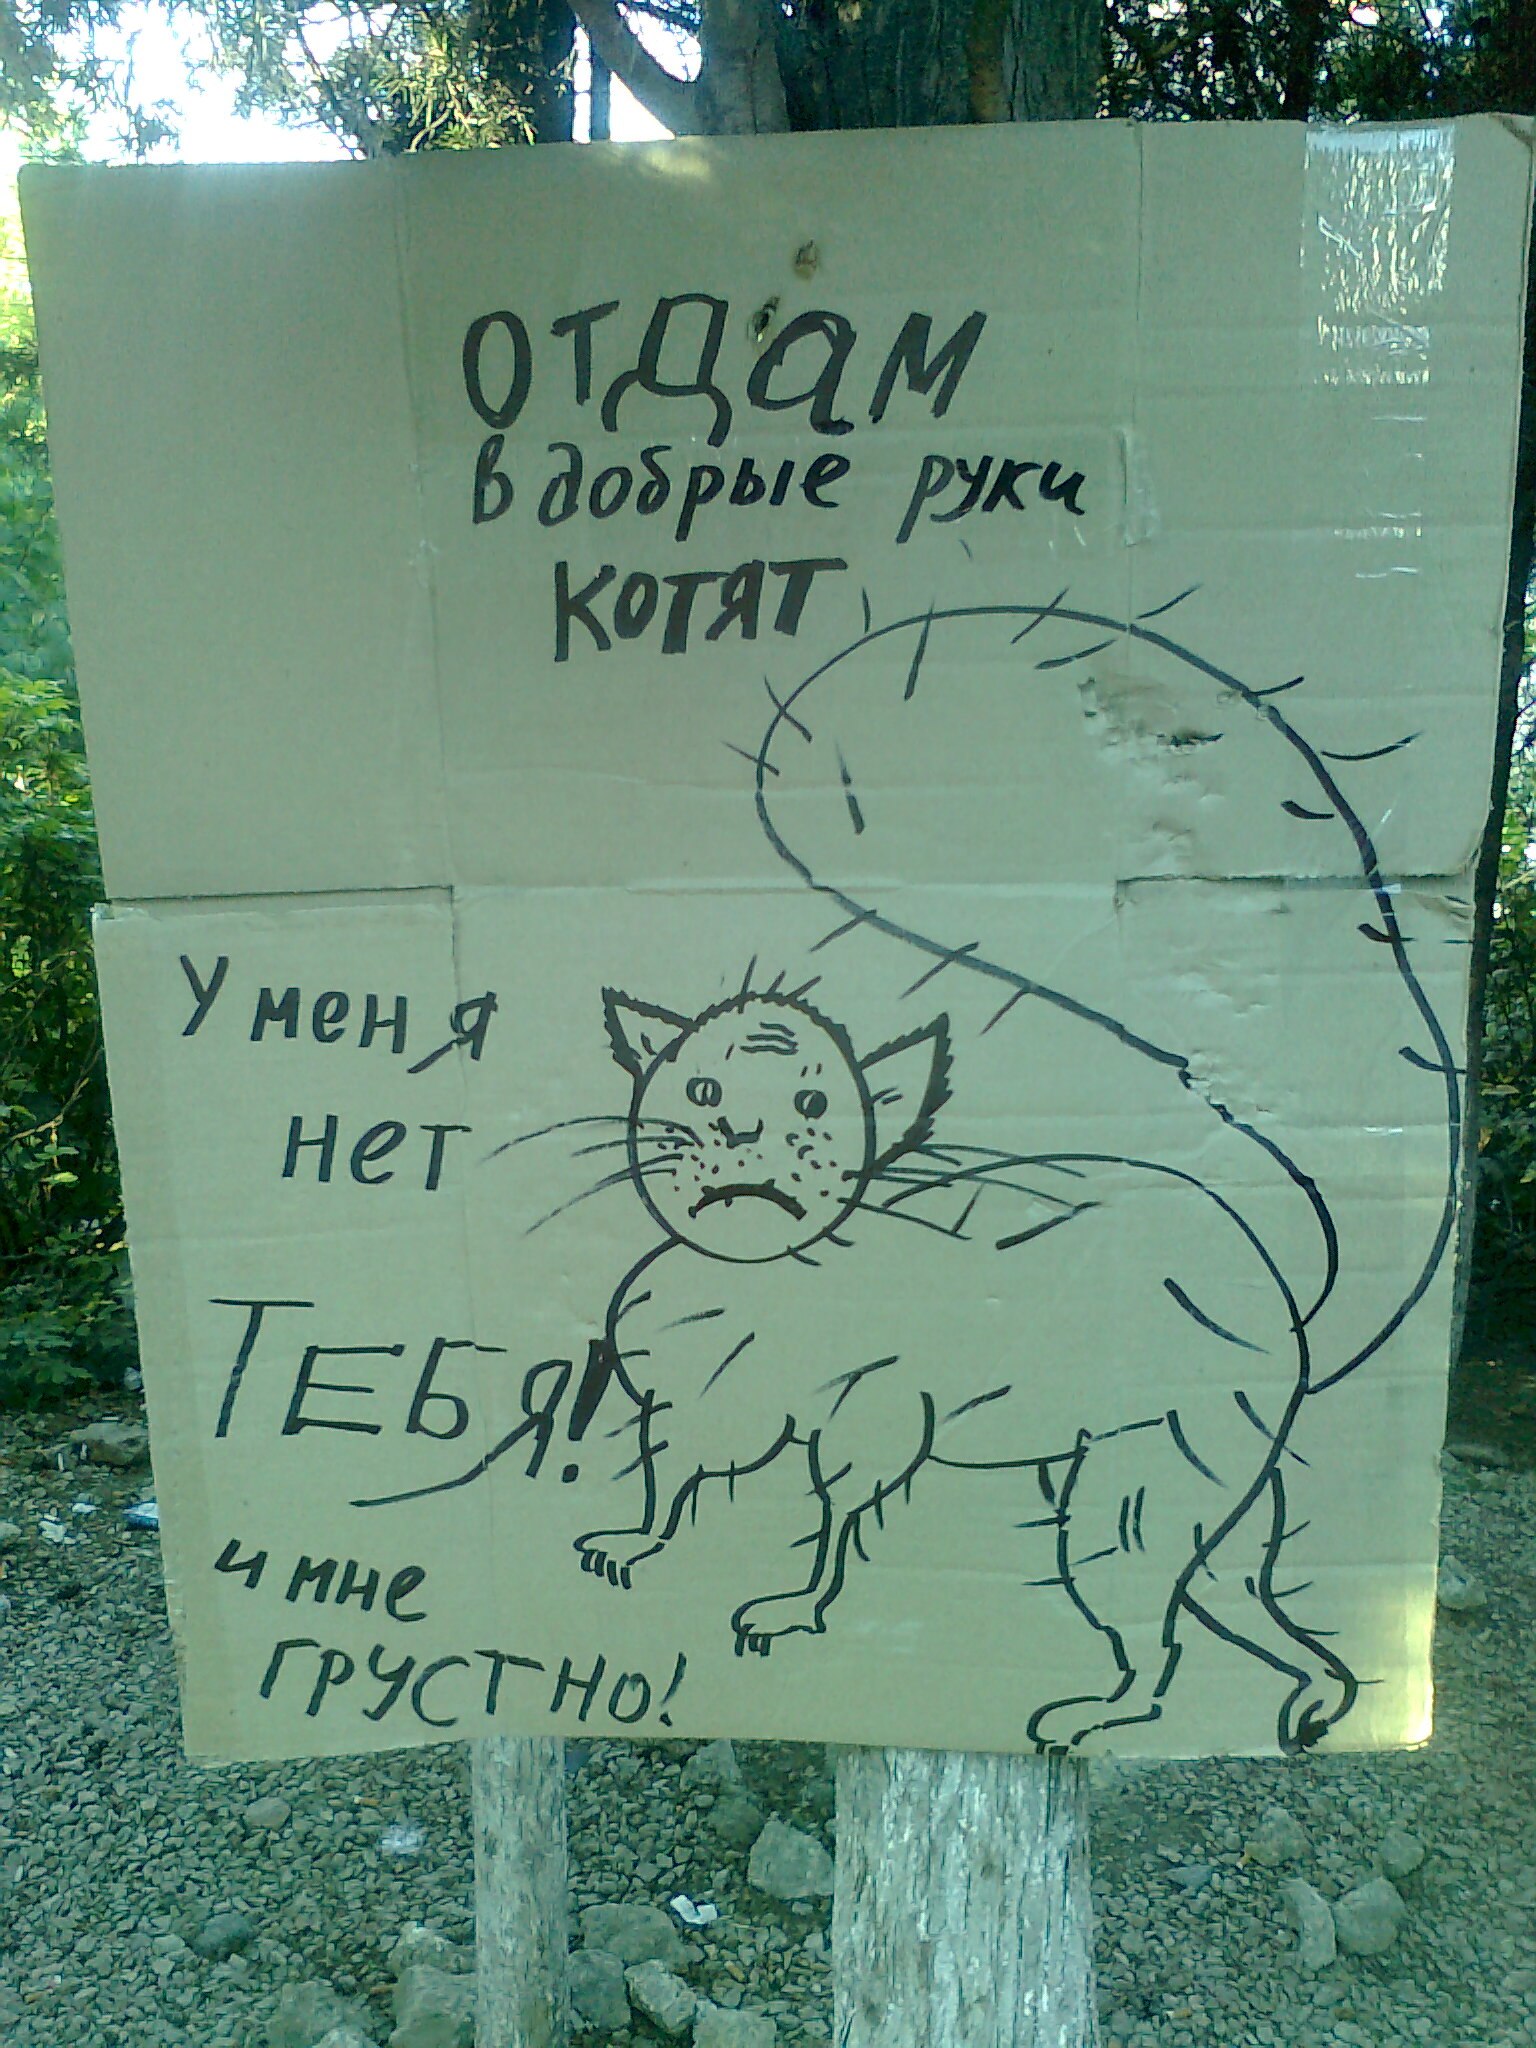 ОТДАМ
в добрые руки
КОТЯТ
У меня
нет
ТЕБЯ!
и мне
ГРУСТНО!